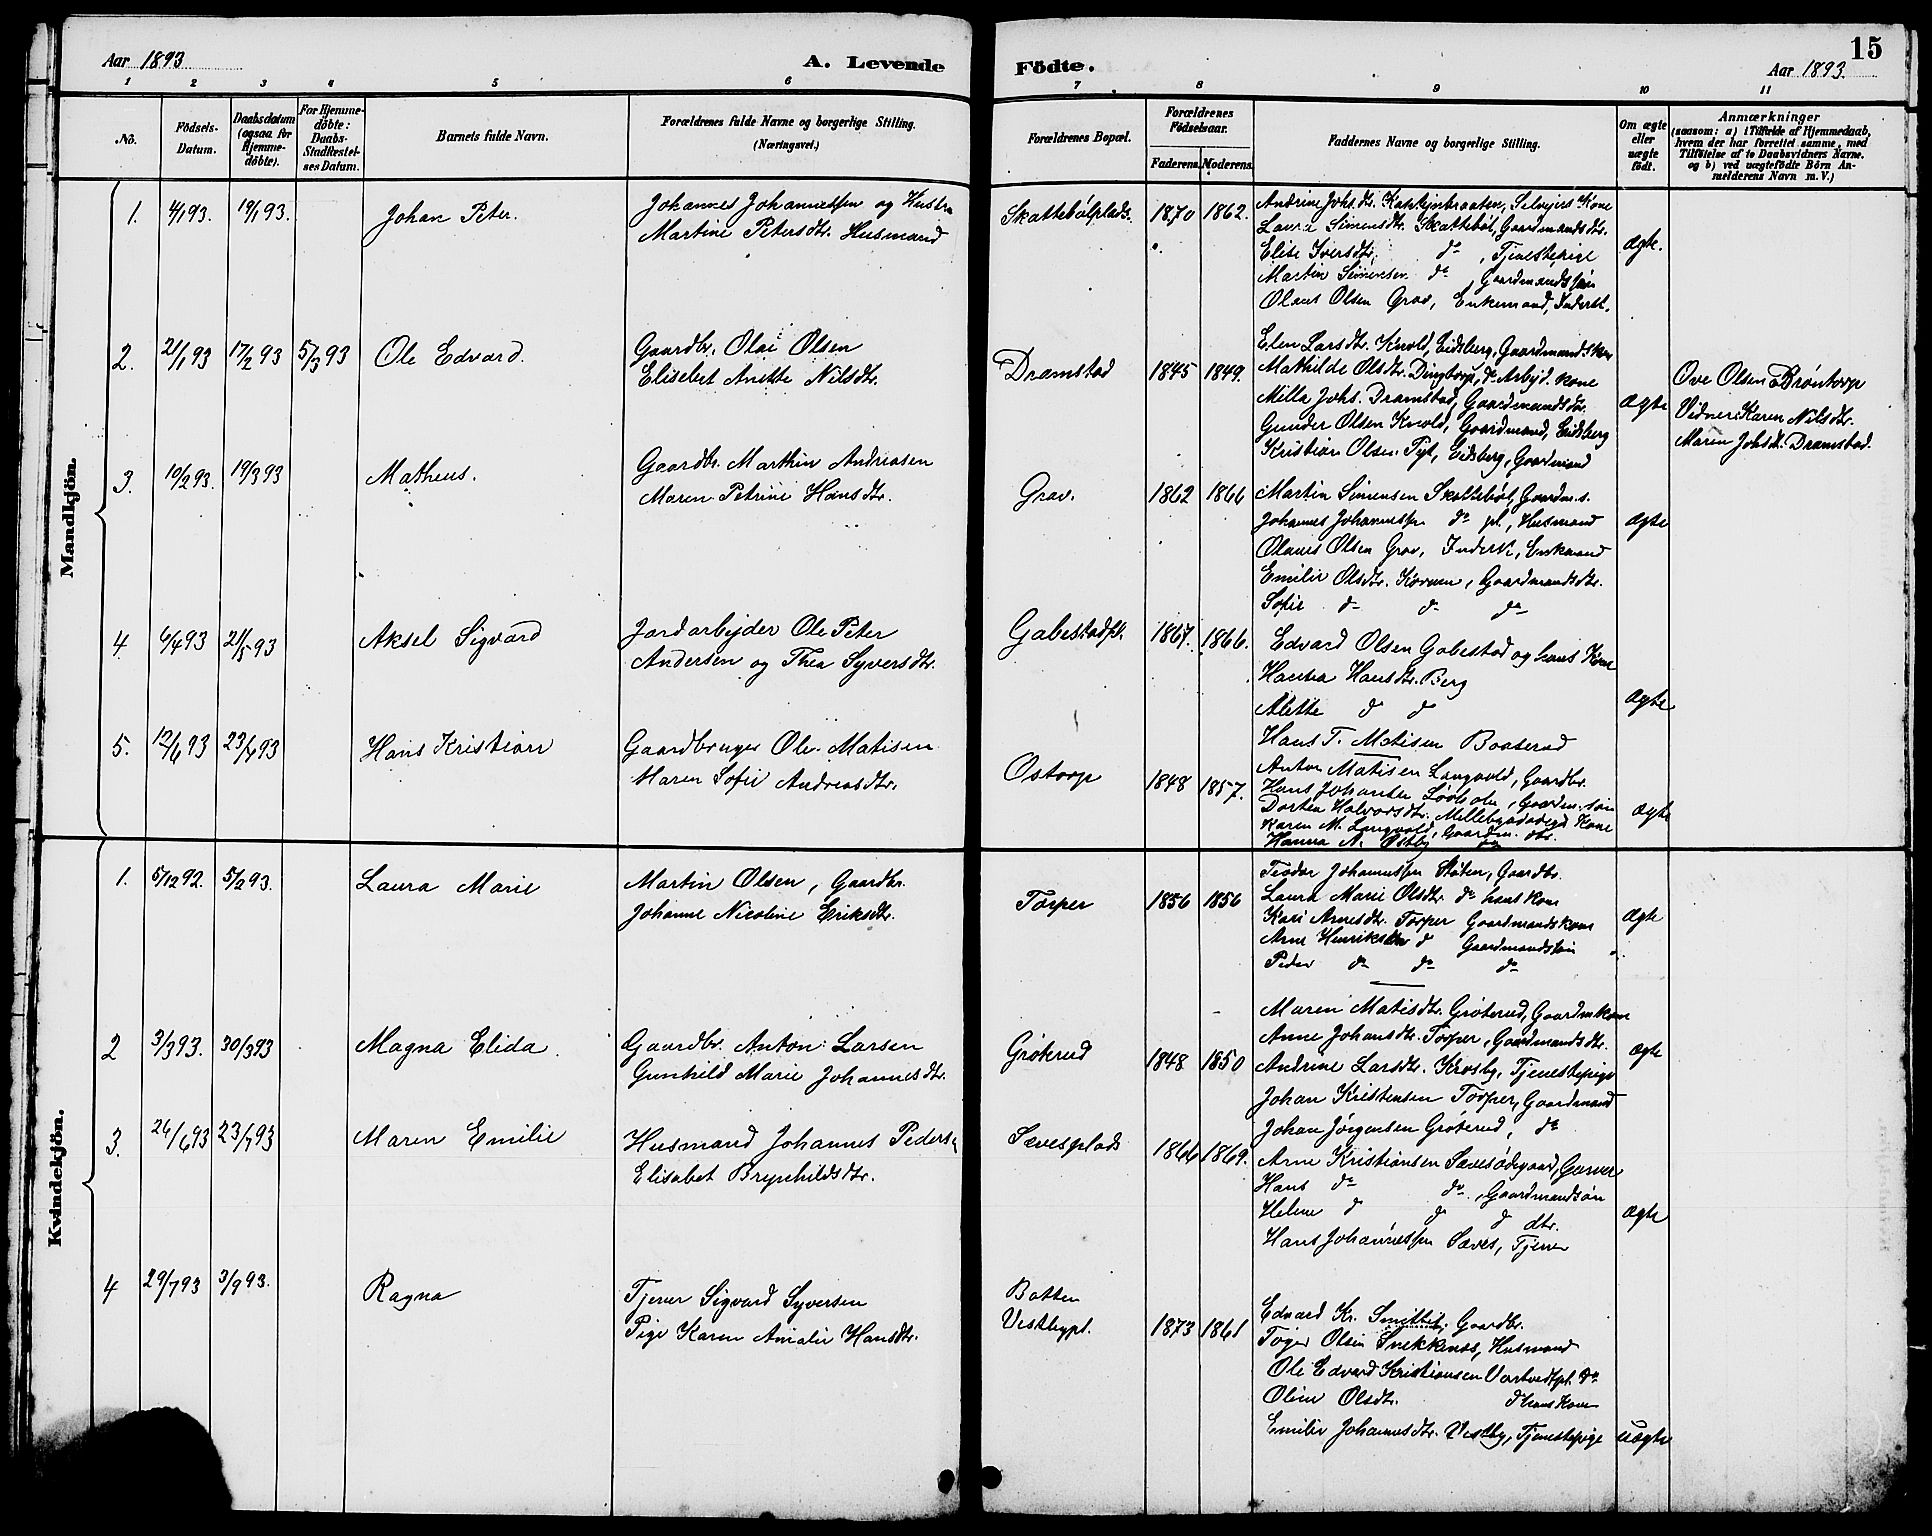 Aar 1893
A. Levende Födte.
Aar 1893.
15
1 2 3 4 5 6 7 8 9 10 11
No.
Födsels-
Datum.
Daabsdatum
(ogsaa for
Hjemme-
döbte).
For Hjemme-
döbte:
Daabs-
Stadfæstel-
ses Datum.
Barnets fulde Navn.
Forældrenes fulde Navne og borgerlige Stilling.
(Næringsvei.)
Forældrenes Bopæl.
Forældrenes
Födselsaar.
Faderens. Moderens.
Faddernes Navne og borgerlige Stilling.
Om ægte
eller
uægte
födt.
Anmærkninger
(saasom: a) i Tilfælde af Hjemmedaab,
hvem der har forrettet samme, med
Tilföielse af to Daabsvidners Navne.
og b) ved uægtefödte Börn An-
melderens Navn m. V.)
Mandkjön.
1. 4/1 93. 19/1 93. Johan Peter.
Johannes Johannessen og Hustru
Martine Petersdtr. Husmand
Skattebølplads. 1870 1862.
Andrine Johs.dtr. Selvejers Kone
Laura Simensdtr. Skattebøl, Gaardmandsdtr.
Elise Iversdtr. do , Tjenestepige
Martin Simensen do Gaardmandssøn
Olaus Olsen Grav, Enkemand, Inderst.
Ægte.
2. 21/1 93 17/2 93 5/3 93 Ole Edvard.
Gaardbr. Olai Olsen
Elisebet Anette Nilsdtr.
Dramstad 1845 1849.
Elen Larsdtr. Knold, Eidsberg, Gaardmandskone
Mathilde Olsdtr. Dingtorp, do Arbejd. kone
Milla Johs. Dramstad, Gaardmandsdtr.
Gunder Olsen Knold, Gaardmand, Eidsberg
Kristian Olsen Eidsberg, Gaardmand
Ægte
Ove Olsen Brøntorp
Vidner: Karen Nilsdtr.
Maren Johsdt. Dramstad.
3. 10/2 93. 19/3 93 Matheus.
Gaardbr. Marthin Andreasen
Maren Petrine Hansdtr.
Grav. 1862 1866
Martin Simensen Skattebøl, Gaardm. s.
Johannes Johannessen do pl., Husmand
Olaves Olsen Grav, Inderst, Enkmand
Emilie Olsdtr. Gaardmandsdtr.
Sofie do do do
Ægte
4. 6/4 93 21/5 93 Aksel Sigvard
Jordarbejder Ole Peter
Andersen og Thea Syversdtr.
Gabestadpl. 1867. 1866.
Edvard Olsen Gabestad og hans Kone
Hansdtr. Berg
Alette do do
Hans T. Matisen Boaterud
Ægte
5. 12/6 93 23/7 93 Hans Kristian
Gaardbruger Ole Matisen
Maren Sofie Andreasdtr.
Ostorp 1848 1857.
Anton Matisen Langvold, Gaardbr.
Hans Johansen Gaardm. søn
Dortea Halvorsdtr. Kone
Karen M. Langvold, Gaardm. dtr.
Hanna N. Østby do
Ægte
Kvindekjön.
1. 5/12 92. 5/2 93. Laura Marie
Martin Olsen, Gaardbr.
Johanne Nicoline Eriksdtr.
Torper 1856 1856
Teodor Johannessen Støten, Gaardbr.
Laura Marie Olsdtr do hans kone
Kari Arnesdtr. Torper Gaardmandskone
Arne Henriksen do Gaardmandssøn
Peder do do do
Ægte
2 3/3 93. 30/3 93 Magna Elida.
Gaardbr. Anton Larsen
Gunhild Marie Johannesdtr.
Grøterud 1848 1850
Maren Matisdtr. Grøterud, Gaardmkone
Anne Johansdtr. Torper, Gaardmandsdtr.
Andrine Larsdtr. Krosby, Tjenestepige
Johan Kristensen Torper, Gaardmand
Johan Jørgensen Grøterud, do
Ægte
3. 26/6 93 23/7 93 Maren Emilie
Husmand Johannes Peders
Elisabet Brynhildsdtr.
Sævesplads 1866 1869.
Arne Kristiansen Sævesødegaard, Garver
Hans do do, Gaardmandsøn
Helene do do do dtr.
Hans Johannessen Sæves, Tjener
Ægte
4 29/7 93 3/9 93. Ragna
Tjener Sigvard Syversen
Pige Karen Amalie Hansdtr.
Botten
Vestbypl. 1873 1861
Edvard Kr. Gaardbr.
Olsen Snekkenes, Husmand
Ole Edvard Kristiansen do
Oline Olsdtr. do hans Kone
Emilie Johannesdtr. Vestby, Tjenestepige
uægte